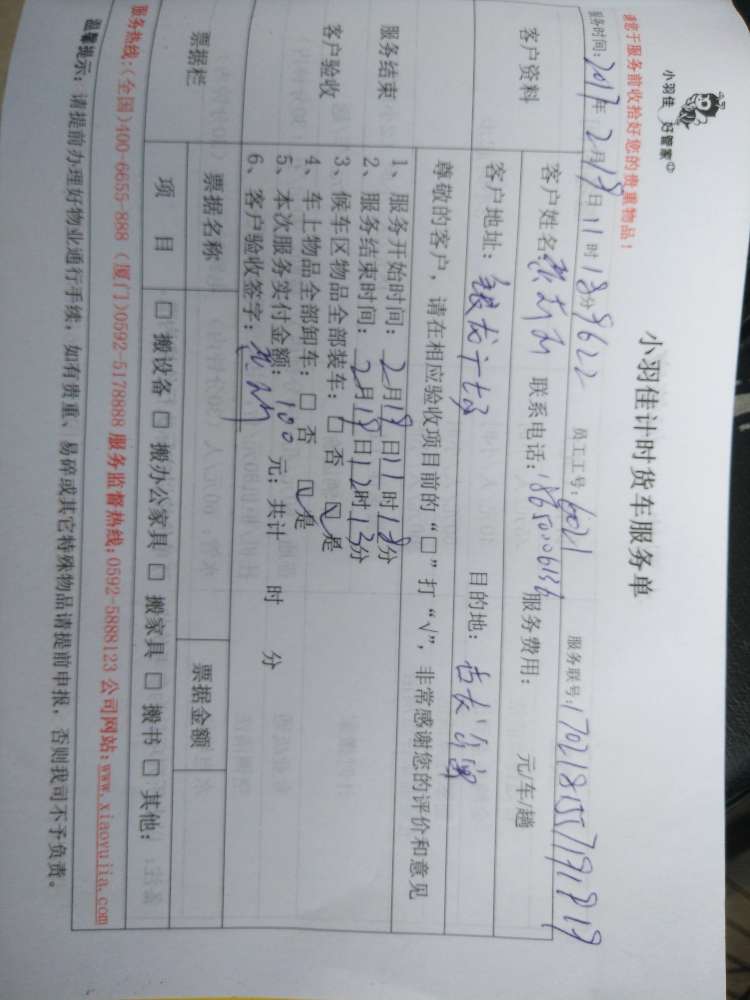 小羽佳 好管家
小羽佳计时货车服务单
请您于服务前收拾好您的贵重物品!
服务时间: 2017年2月18日11时18分 9622 员工工号: 6021 服务联号: 1702181557191819
客户资料
客户姓名: 联系电话: 服务费用: 元/车/趟
客户地址: 银龙广场 目的地:
尊敬的客户,请在相应验收项目前的“□”打“√”,非常感谢您的评价和意见
服务结束
客户验收
1、服务开始时间: 2月18日11时18分
2、服务结束时间: 2月18日12时13分
3、候车区物品全部装车: □ 否 ☑ 是
4、车上物品全部卸车: □ 否 ☑ 是
5、本次服务实付金额: 100 元; 共计 时 分
6、客户验收签字:
票据栏
票据名称 票据金额
项 目 □ 搬设备 □ 搬办公家具 □ 搬家具 □ 搬书 □ 其他:
服务热线:(全国)400-6655-888 (厦门)0592-5178888 服务监督热线:0592-5888123 公司网站:www.xiaoyujia.com
温馨提示: 请提前办理好物业通行手续,如有贵重、易碎或其它特殊物品请提前申报,否则我司不予负责。